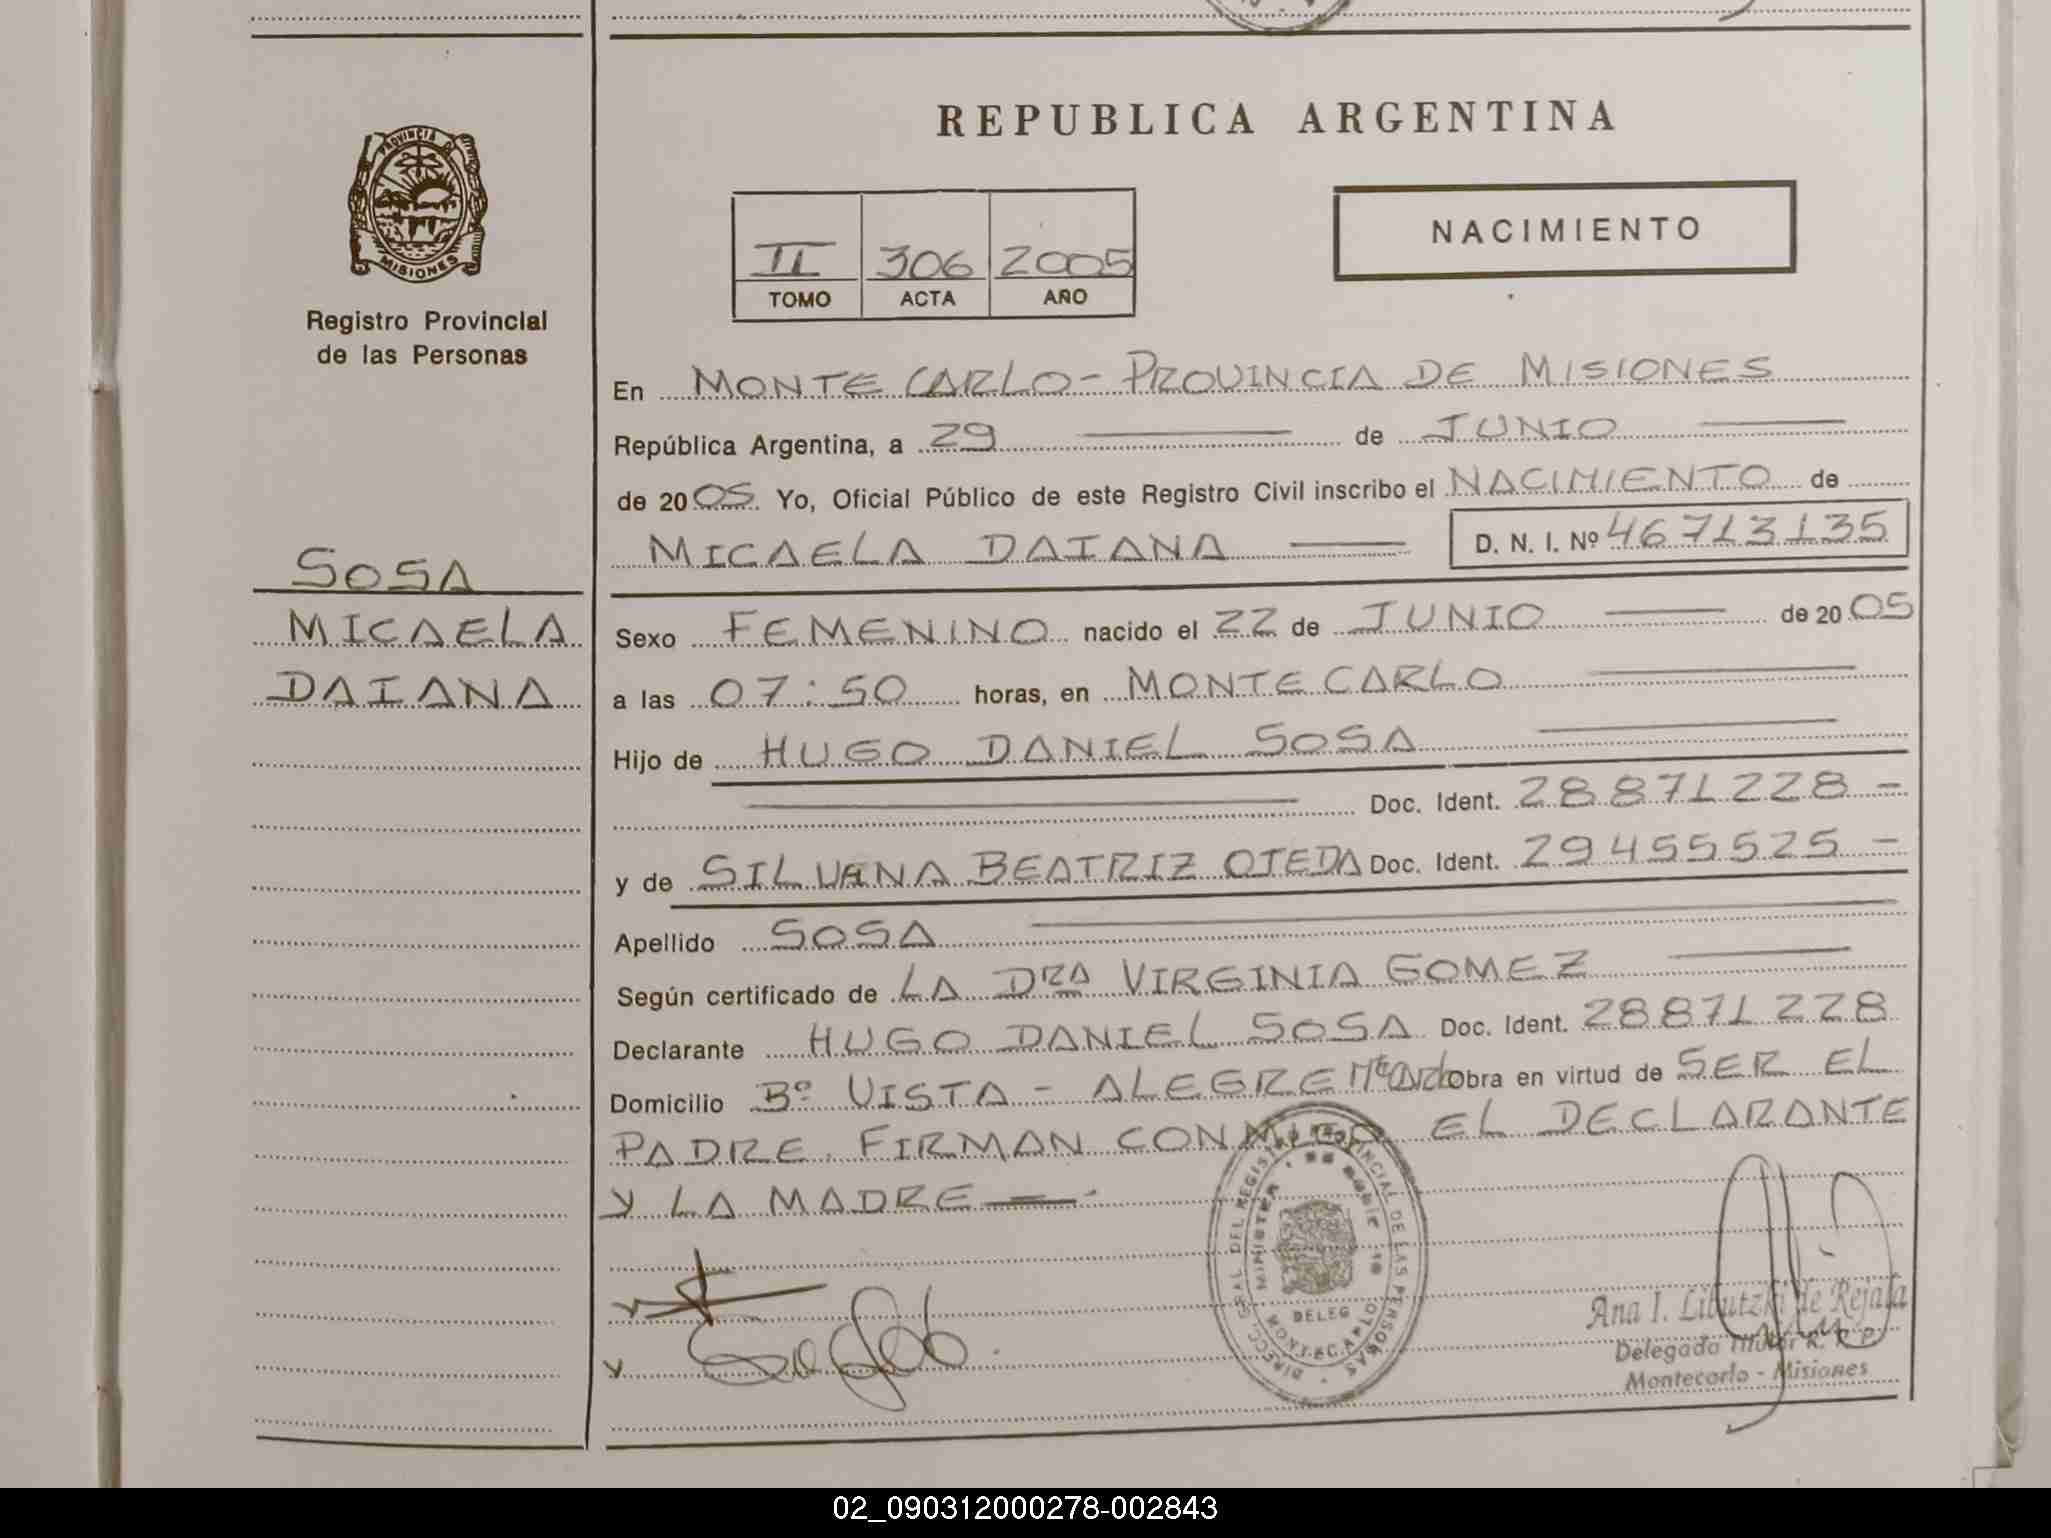 REPUBLICA ARGENTINA
PROVINCIA DE
MISIONES
Registro Provincial
de las Personas
II 306 2005
TOMO ACTA AÑO
NACIMIENTO
En MONTE CARLO - PROVINCIA DE MISIONES
República Argentina, a 29 de JUNIO
de 2005. Yo, Oficial Público de este Registro Civil inscribo el NACIMIENTO de
MICAELA DAIANA D. N. I. Nº 46713135
SOSA
MICAELA
DAIANA
Sexo FEMENINO nacido el 22 de JUNIO de 2005
a las 07:50 horas, en MONTE CARLO
Hijo de HUGO DANIEL SOSA
Doc. Ident. 28871228 -
y de SILVANA BEATRIZ OJEDA Doc. Ident. 29455525 -
Apellido SOSA
Según certificado de LA DRA VIRGINIA GOMEZ
Declarante HUGO DANIEL SOSA Doc. Ident. 28871228
Domicilio Bº VISTA - ALEGRE Mte Carlo Obra en virtud de SER EL
PADRE. FIRMAN CONMIGO EL DECLARANTE
Y LA MADRE
DIRECC. GRAL DEL REGISTRO PROVINCIAL DE LAS PERSONAS
DELEG
Ana I. Libutzki de Rejala
Delegada Titular R. R. P.
Montecarlo - Misiones
02_090312000278-002843